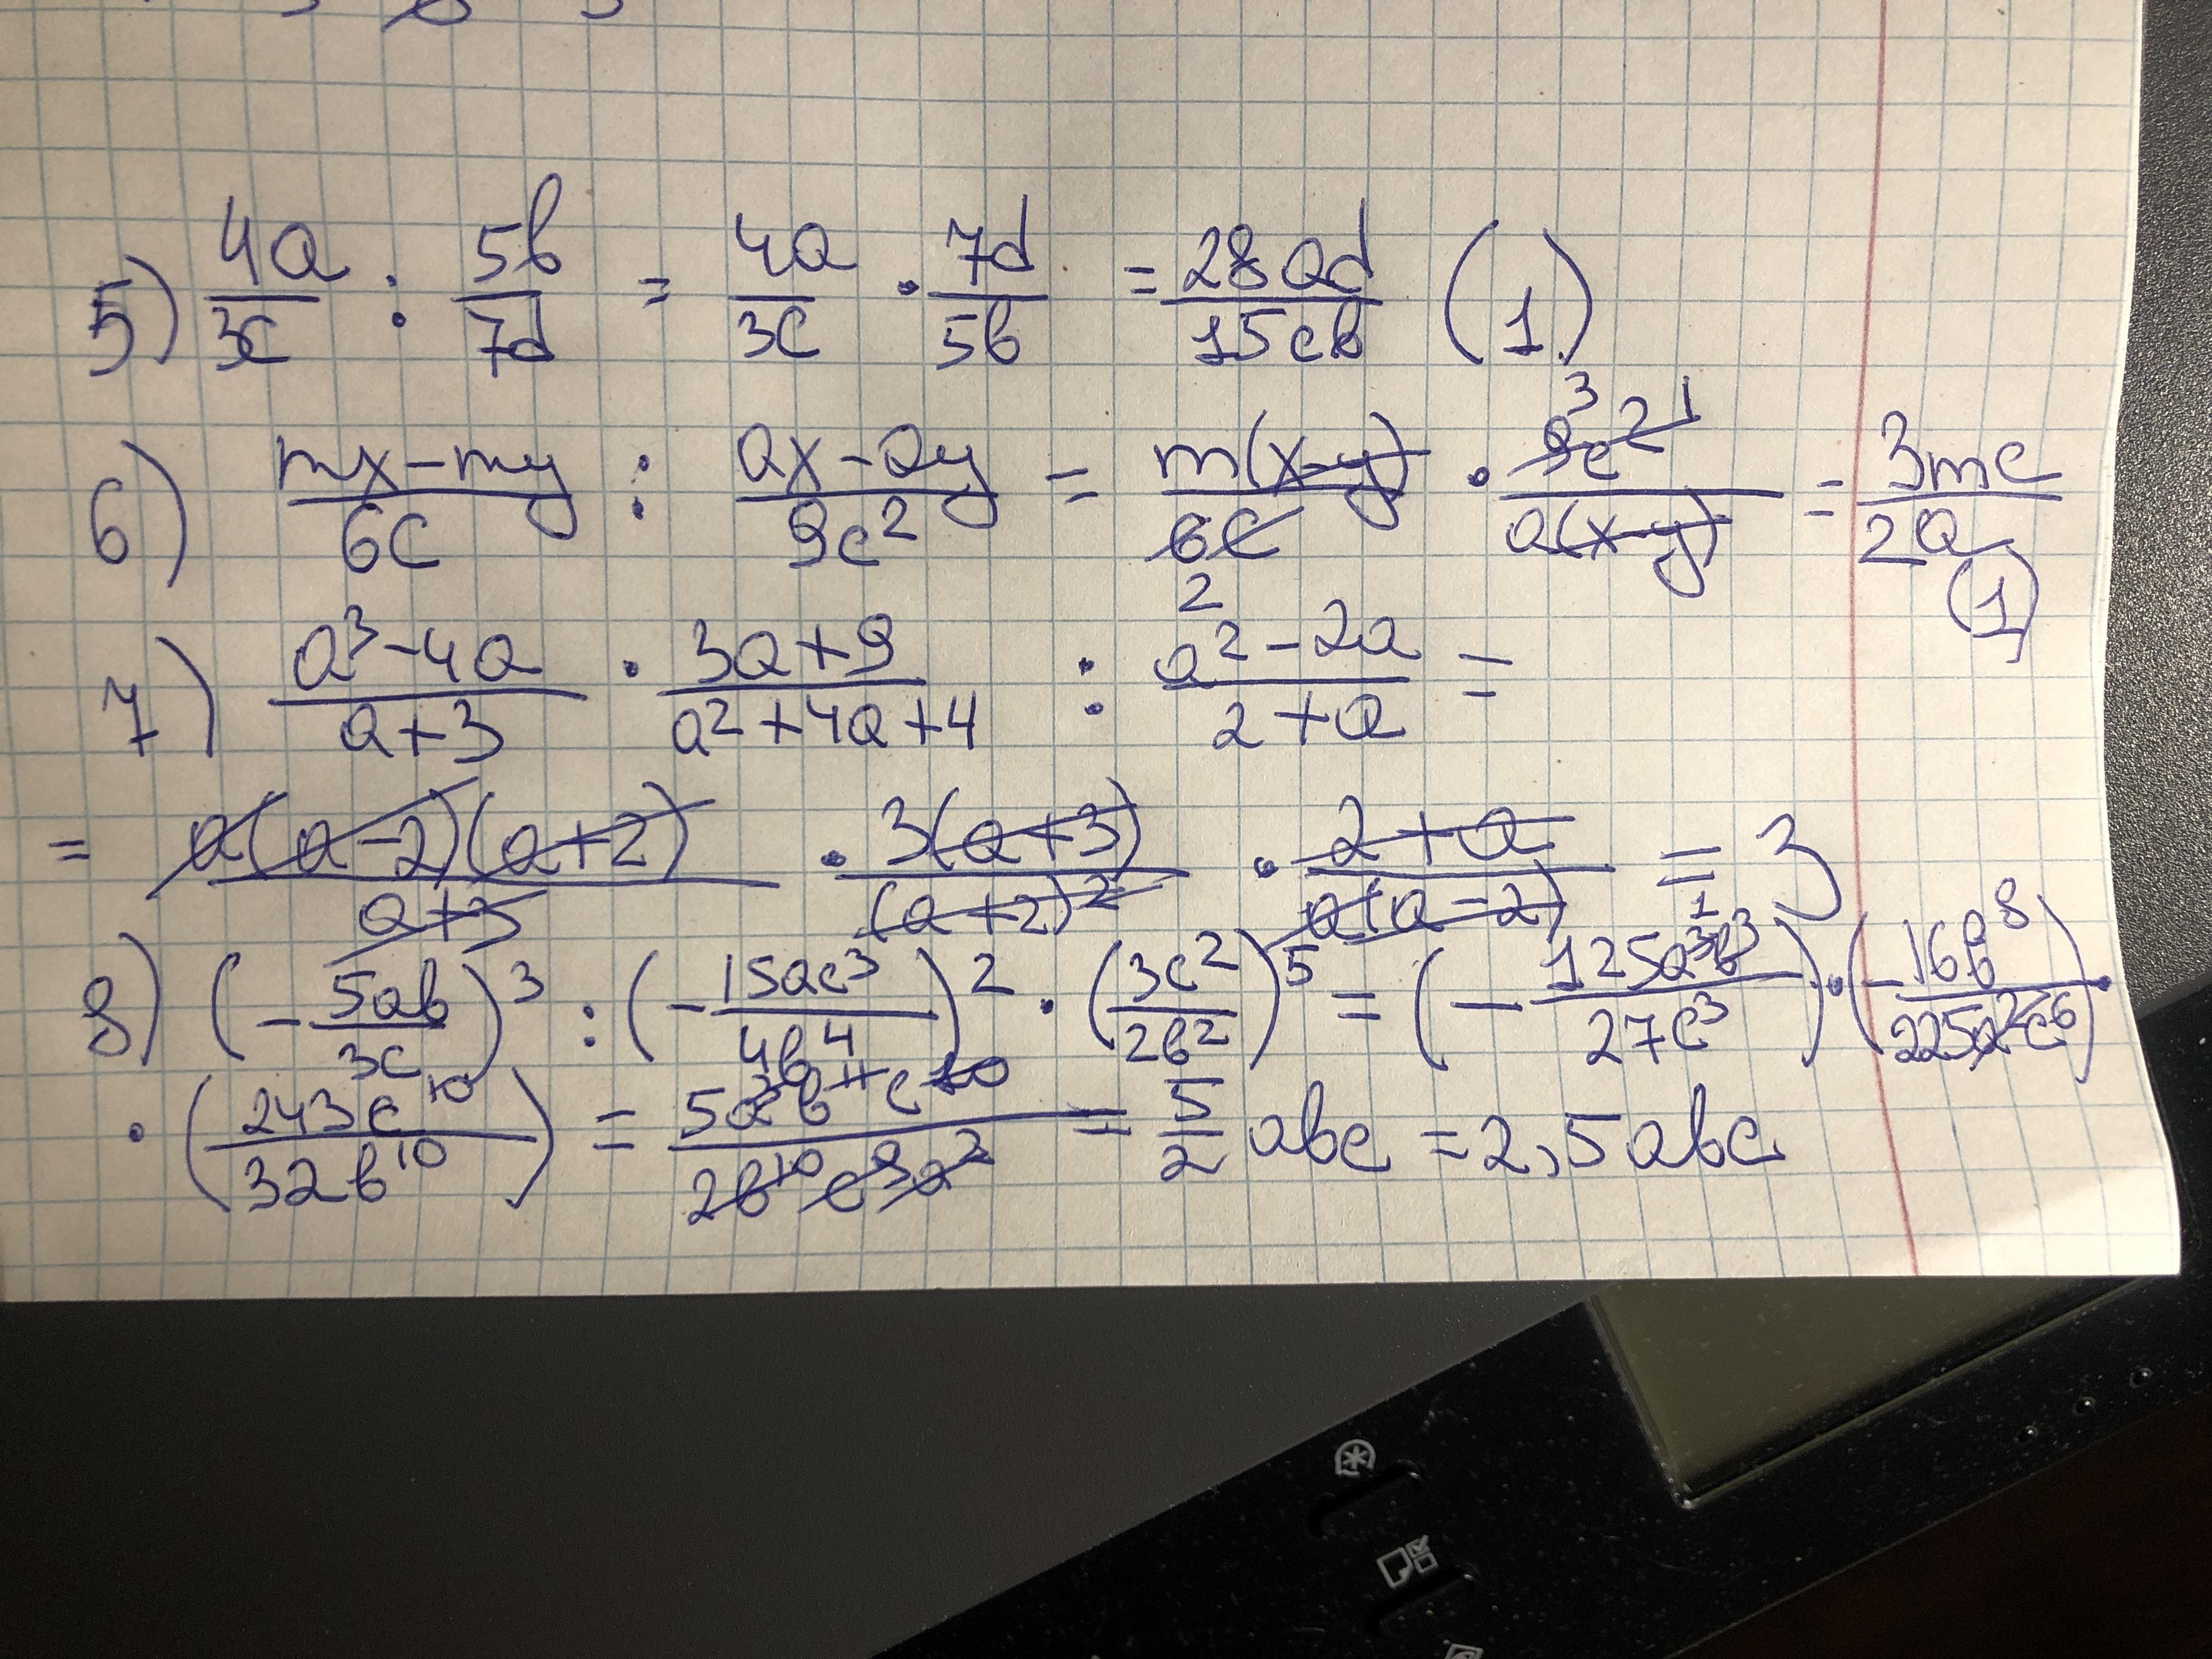 5) 4a/3c : 5b/7d = 4a/3c · 7d/5b = 28ad/15cb (1)
6) mx-my/6c : ax-ay/9c² = m(x-y)/6c 2 · 3 9c² 1/a(x-y) = 3mc/2a (1)
7) a³-4a/a+3 · 3a+9/a²+4a+4 : a²-2a/2+a =
= a(a-2)(a+2)/a+3 · 3(a+3)/(a+2)² · 2+a/a(a-2) = 3
8) (-5ab/3c)³ : (-15ac³/4b⁴)² · (3c²/2b²)⁵ = (-125a³b³/27c³) · (-16b⁸/225a²c⁶) ·
· (243c¹⁰/32b¹⁰) = 5a³b¹¹c¹⁰/2b¹⁰c⁹a² = 5/2 abc = 2,5abc